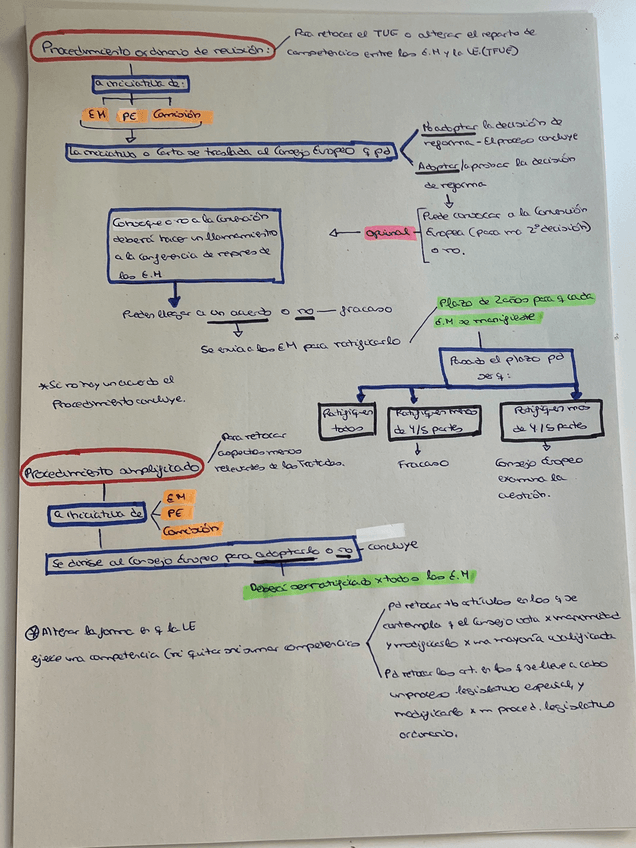 Procedimiento ordinario de revisión:
Para retocar el TUE o alterar el reparto de
competencias entre los E.M y la UE.(TFUE)
a iniciativa de:
EM PE Comisión
La iniciativa o Carta se traslada al Consejo Europeo q pd
No adoptar la decisión de
reforma - El proceso concluye
Adoptar/aprobar la decisión
de reforma
Puede convocar a la Convención
Europea (para una 2ª decisión)
o no.
Opcional
Convoque o no a la Convención
deberá hacer un llamamiento
a la conferencia de repres de
los E.M
Puedes llegar a un acuerdo o no — fracaso
Se envía a los EM para ratificarlo
Plazo de 2 años para q cada
E.M se manifieste
Pasado el plazo pd
ser q:
Ratifiquen
todos
Ratifiquen menos
de 4/5 partes
Ratifiquen mas
de 4/5 partes
Fracaso
Consejo Europeo
examina la
cuestión.
*Si no hay un acuerdo el
Procedimiento concluye.
Procedimiento simplificado
Para retocar
aspectos menos
relevantes de los Tratados.
a iniciativa de
EM
PE
Comisión
Se dirige al Consejo Europeo para adoptarlo o no - concluye
Deberá ser ratificado x todos los E.M
* Alterar la forma en q la UE
ejerce una competencia (ni quitar ni sumar competencias
Pd retocar tb artículos en los q se
contempla q el Consejo vota x unanimidad
y modificarlo x una mayoría cualificada
Pd retocar los art. en los q se lleve a cabo
un proceso legislativo especial, y
modificarlo x un proced. legislativo
ordinario.